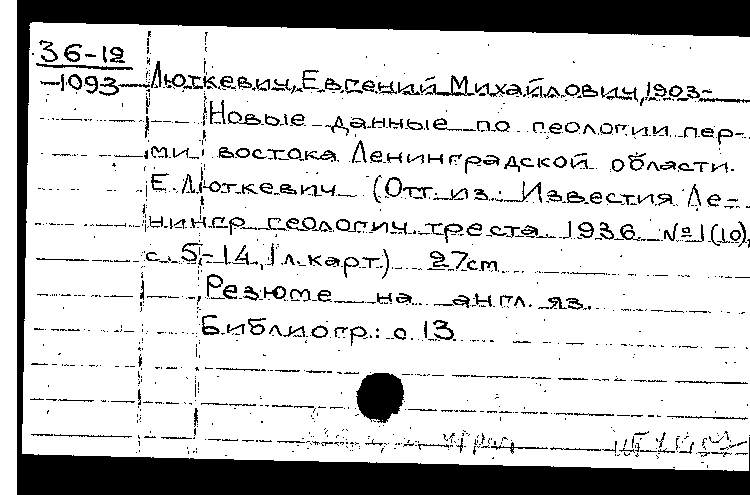 36-12
-1093
Люткевич, Евгений Михайлович, 1903-
Новые данные по геологии пер-
ми востока Ленинградской области.
Е. Люткевич (Отт. из: Известия Ле-
нингр геологич. треста 1936 №1(10),
с. 5-14, 1 л. карт.) 27cm
Резюме на англ. яз.
Библиогр.: с. 13